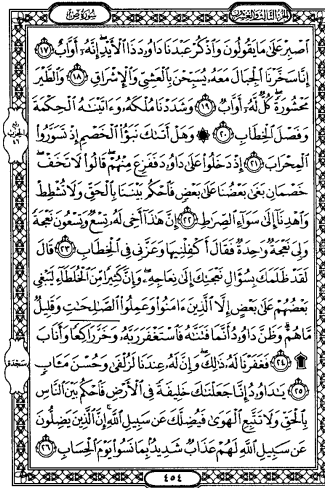 الجزء الثالث والعشرون
سورة ص
اصبر على ما يقولون واذكر عبدنا داوود ذا الأيد إنه أواب ١٧
إنا سخرنا الجبال معه يسبحن بالعشي والإشراق ١٨ والطير
محشورة كل له أواب ١٩ وشددنا ملكه وءاتيناه الحكمة
وفصل الخطاب ٢٠ ۞ وهل أتاك نبؤا الخصم إذ تسوروا
المحراب ٢١ إذ دخلوا على داوود ففزع منهم قالوا لا تخف
خصمان بغى بعضنا على بعض فاحكم بيننا بالحق ولا تشطط
واهدنا إلى سواء الصراط ٢٢ إن هذا أخي له تسع وتسعون نعجة
ولي نعجة واحدة فقال أكفلنيها وعزني في الخطاب ٢٣ قال
لقد ظلمك بسؤال نعجتك إلى نعاجه وإن كثيرا من الخلطاء ليبغي
بعضهم على بعض إلا الذين ءامنوا وعملوا الصالحات وقليل
ما هم وظن داوود أنما فتناه فاستغفر ربه وخر راكعا وأناب
۩ ٢٤ فغفرنا له ذلك وإن له عندنا لزلفى وحسن مآب
٢٥ يا داوود إنا جعلناك خليفة في الأرض فاحكم بين الناس
بالحق ولا تتبع الهوى فيضلك عن سبيل الله إن الذين يضلون
عن سبيل الله لهم عذاب شديد بما نسوا يوم الحساب ٢٦
سجدة
٤٥٤